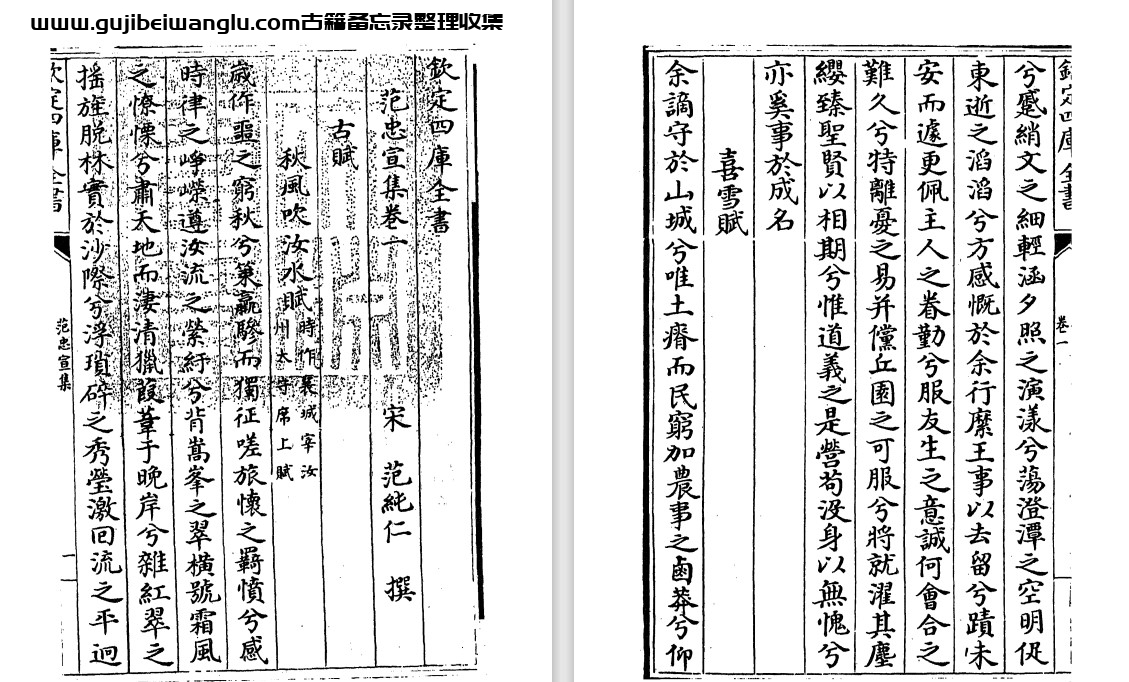 www.gujibeiwanglu.com古籍备忘录整理收集
欽定四庫全書
范忠宣集卷一
宋 范純仁 撰
古賦
秋風吹汝水賦 時作襄城宰汝州太守席上賦
歲作噩之窮秋兮策羸驂而獨征嗟旅懷之羇憤兮感
時律之崢嶸遵汝流之縈紆兮背嵩峯之翠横號霜風
之憭慄兮肅天地而淒清獵葭葦于晚岸兮雜紅翠之
摇旌脱株實於沙際兮浮瑣碎之秀瑩激回流之平迥
欽定四庫全書
范忠宣集
一
欽定四庫全書
卷一
兮蹙綃文之細輕涵夕照之演漾兮蕩澄潭之空明伣
東逝之滔滔兮方感慨於余行縻王事以去留兮蹟未
安而遽更佩主人之眷勤兮服友生之意誠何會合之
難久兮特離憂之易并儻丘園之可服兮將就濯其塵
纓臻聖賢以相期兮惟道義之是營苟没身以無愧兮
亦奚事於成名
喜雪賦
余謫守於山城兮唯土瘠而民窮加農事之鹵莽兮仰